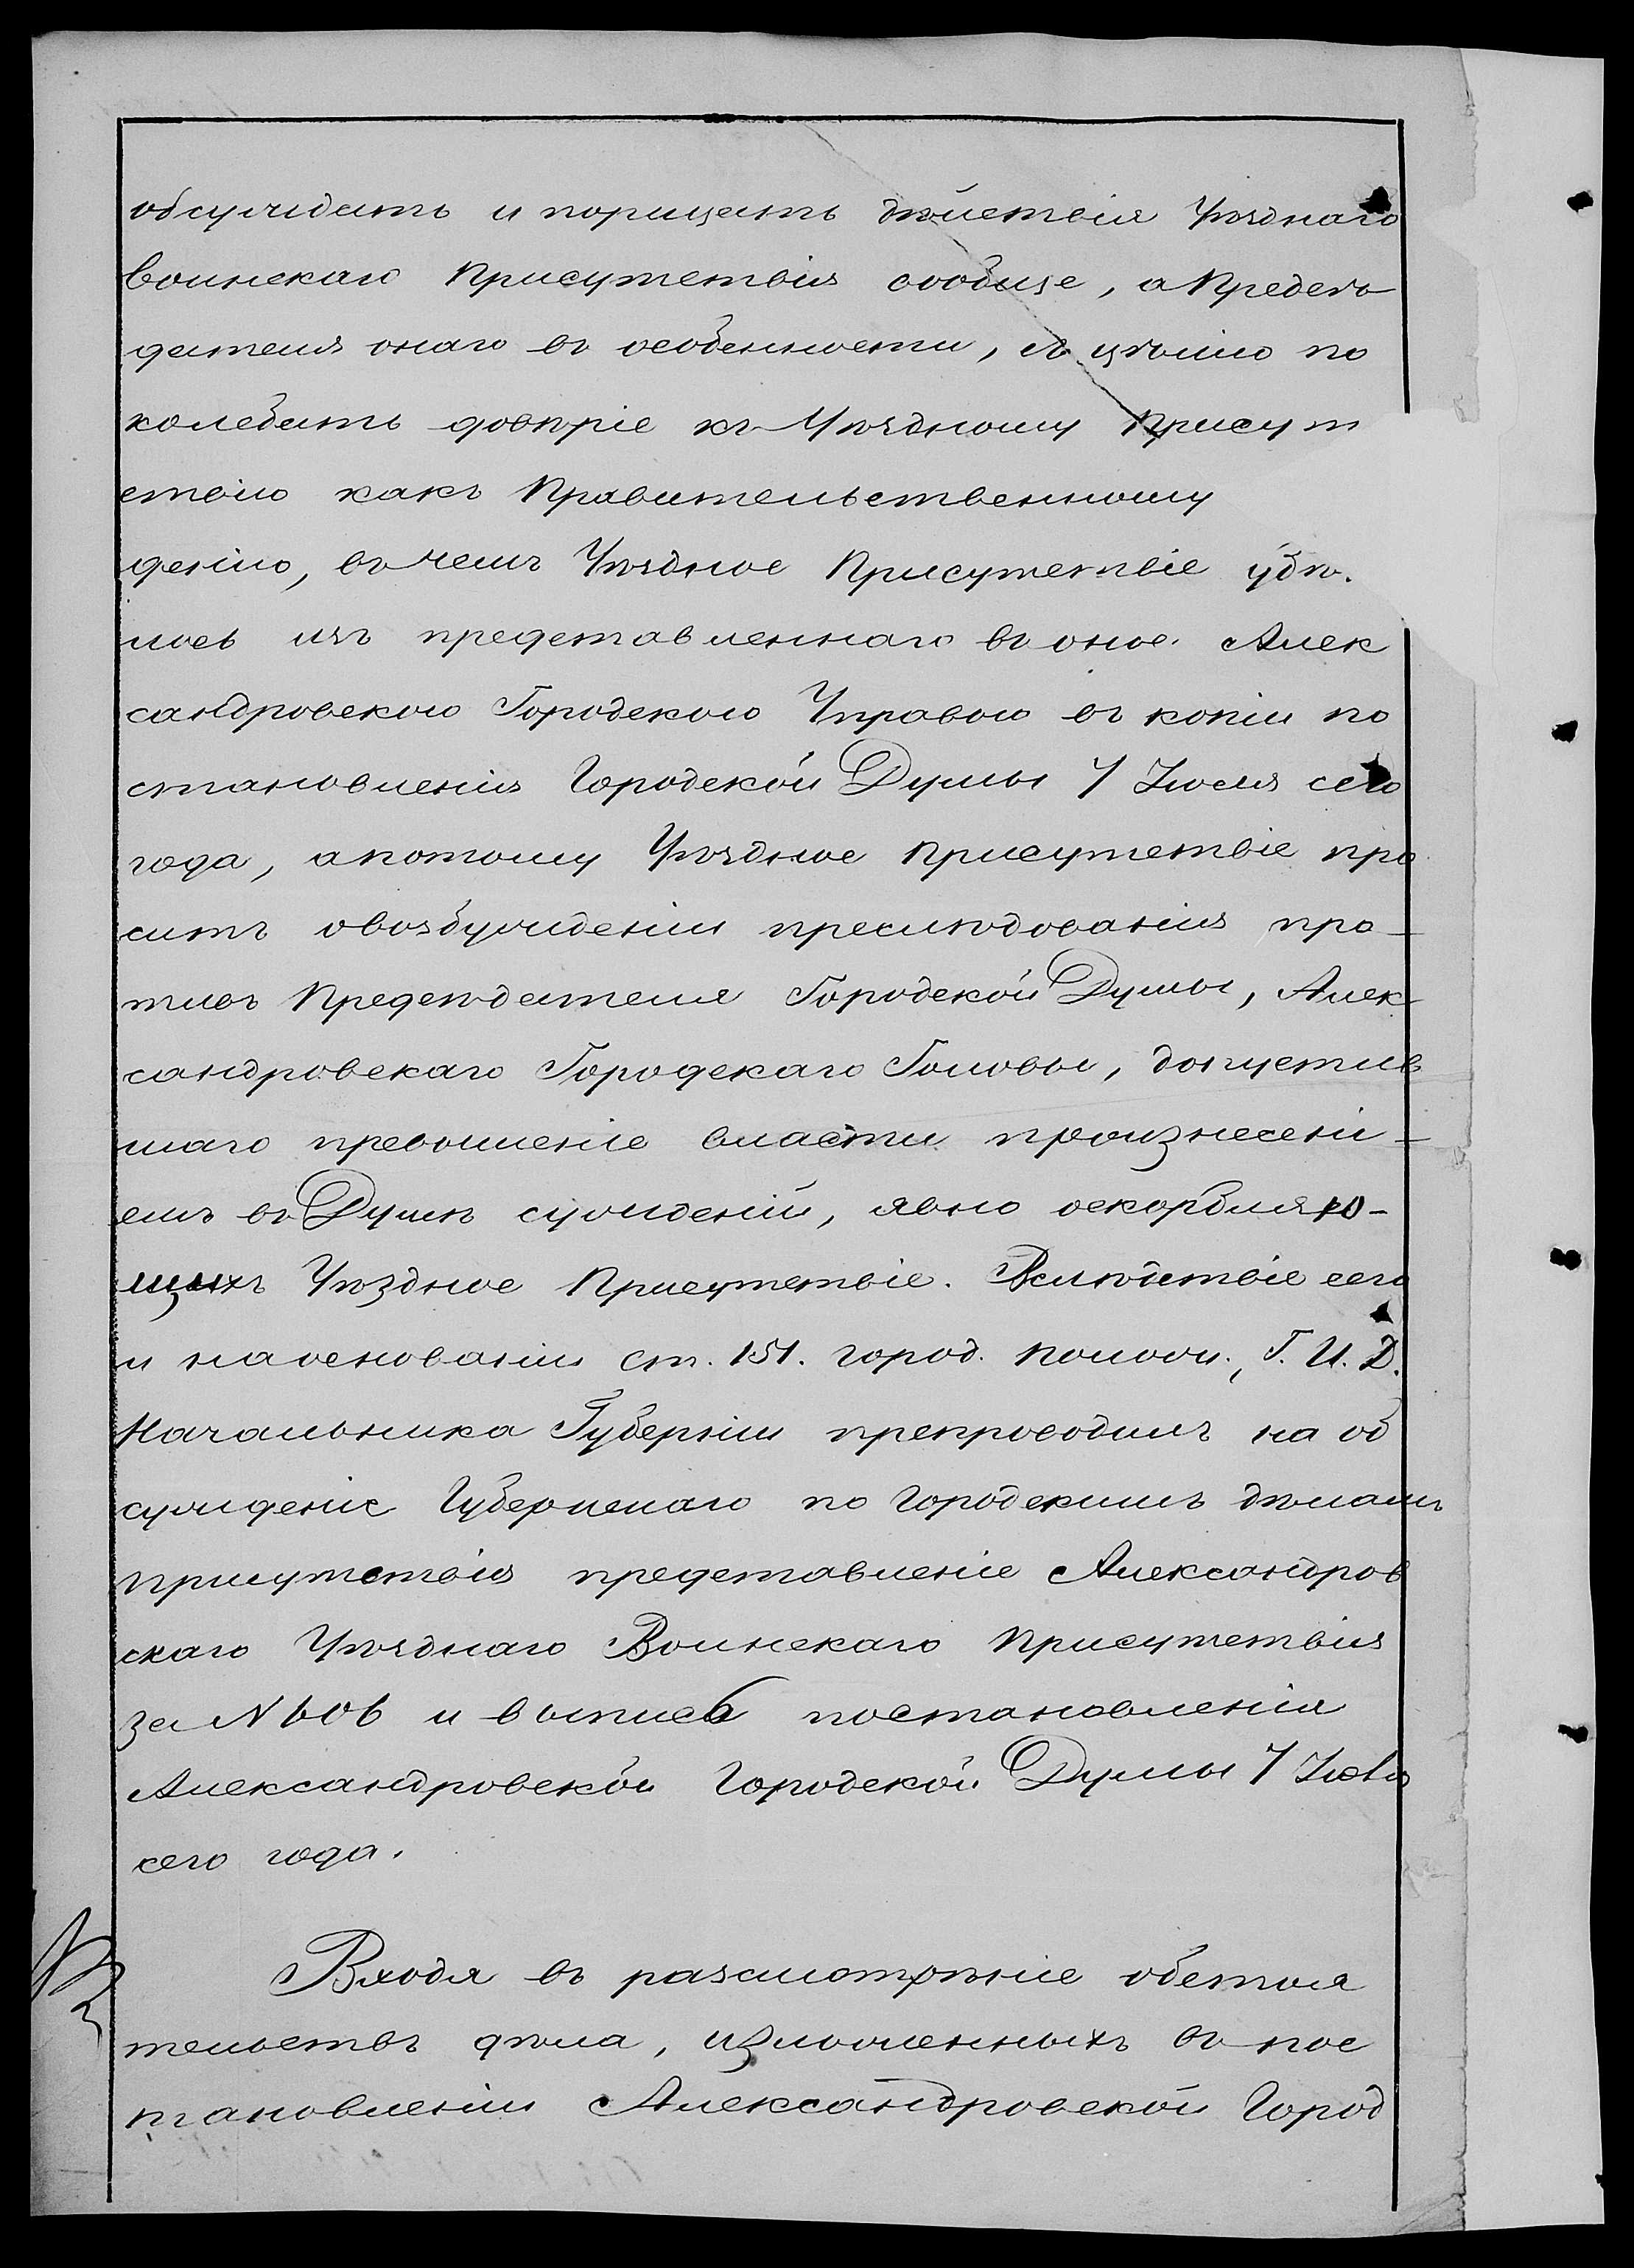 обсуждать и порицать дѣйствія Уѣзднаго
воинскаго Присутствія вообще, а Предсѣ
дателя онаго въ особенности, съ цѣлію по
колебать довѣріе къ Уѣздному Присут
ствію какъ Правительственному
денію, въ чемъ Уѣздное Присутствіе убѣ.
лось изъ представленнаго въ оное Алек
сандровскою Городскою Управою въ копіи по
становленія Городской Думы 7 Іюля сего
года, а потому Уѣздное Присутствіе про
ситъ о возбужденіи преслѣдованія про-
тивъ Предсѣдателя Городской Думы, Алек-
сандровскаго Городскаго Головы, допустив
шаго превышеніе власти произнесені-
емъ въ Думѣ сужденій, явно оскорбляю-
щихъ Уѣздное Присутствіе. Вслѣдствіе сего
и на основаніи ст. 151. город. полож., Г. И. Д.
Начальника Губерніи препроводилъ на об
сужденіе Губернскаго по городскимъ дѣламъ
присутствія представленіе Александров
скаго Уѣзднаго Воинскаго Присутствія
за N 606 и выпись постановленія
Александровской Городской Думы 7 Іюля
сего года.
Входя въ разсмотрѣніе обстоя
тельствъ дѣла, изложенныхъ въ пос
тановленіи Александровской Город